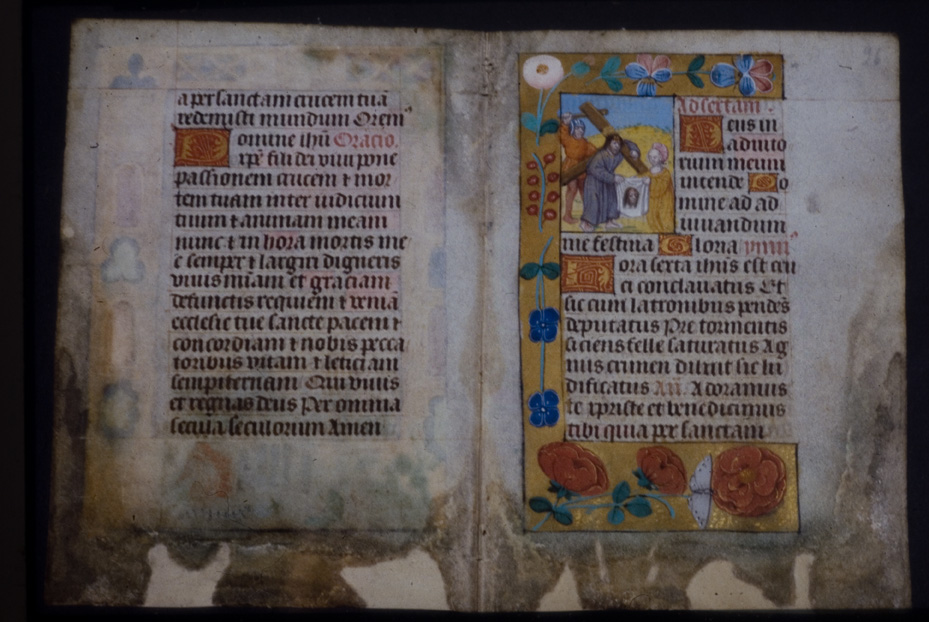 a per sanctam crucem tuā
redemisti mundum Orem⁹
Domine ihū Oracio.
xpē fili dei viui pone
passionem crucem ⁊ mor
tem tuam inter iudicium
tuum ⁊ animam meam
nunc ⁊ in hora mortis me
e semper ⁊ largiri digneris
viuis mīam et graciam
defunctis requiem ⁊ veniā
ecclesie tue sancte pacem ⁊
concordiam ⁊ nobis pecca
toribus vitam ⁊ leticiam
sempiternam Qui viuis
et regnas deus Per omnia
secula seculorum Amen
96
Ad sextam.
Deus in
adiuto
rium meum
intende Do
mine ad ad
iuuandum
me festina Gloria
Hora sexta ihūs est cru
ci conclauatus Et
sic cum latronibus pendēs
deputatus Pre tormentis
siciens felle saturatus Ag
nus crimen diluit sic lu
dificatus Añ. Adoramus
te xpriste et benedicimus
tibi quia per sanctam